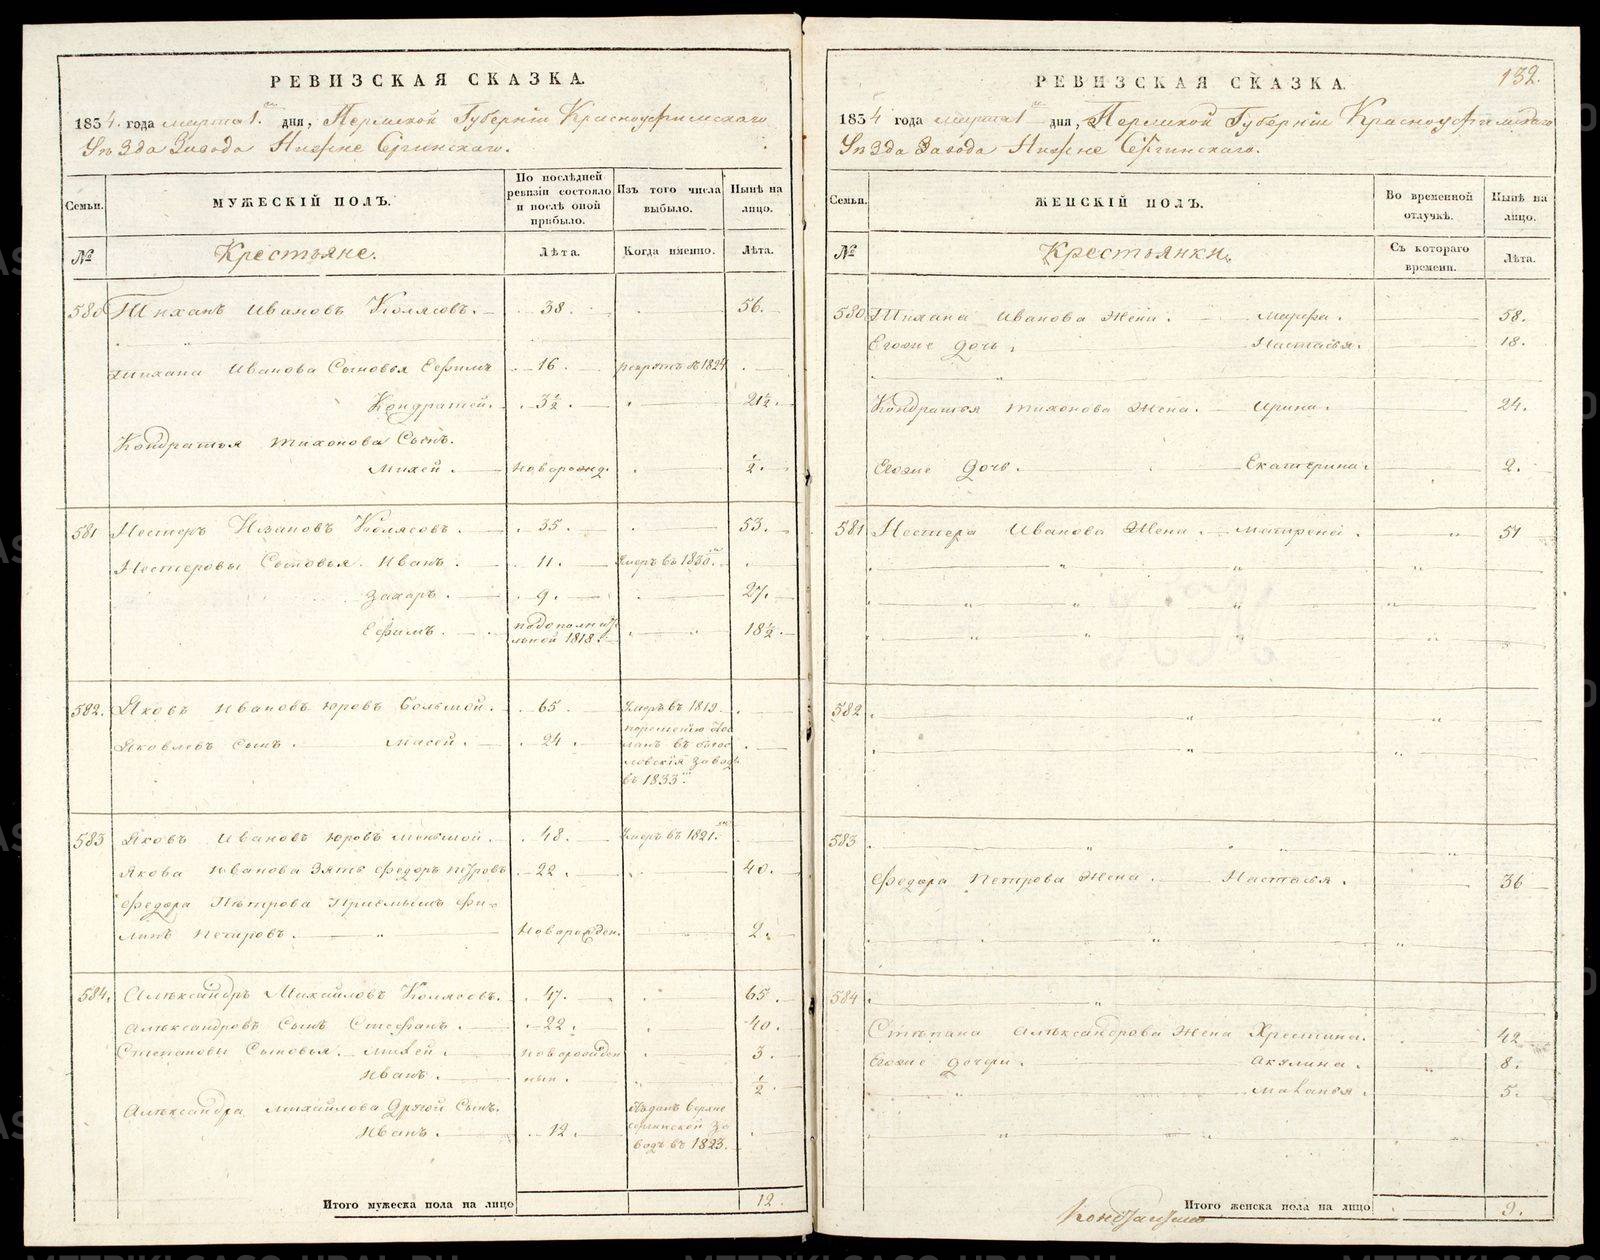 РЕВИЗСКАЯ СКАЗКА.
1834. года марта 1. дня, Пермской Губерніи Красноуфимскаго
Уѣзда Завода Нижне Сергинскаго.
Семьи. МУЖЕСКІЙ ПОЛЪ. По послѣдней ревизіи состояло и послѣ оной прибыло. Изъ того числа выбыло. Нынѣ на лицо.
№ Крестьяне. Лѣта. Когда именно. Лѣта.
580 Тиханъ Ивановъ Колясовъ. 38. 56.
Тихана Иванова Сыновья Ефимъ 16. рекрутъ в 1824
Кондратей. 3½. 21½.
Кондратья Тихонова Сынъ.
Михей. новорожд. ½.
581 Нестеръ Ивановъ Колясовъ. 35. 53.
Нестеровы Сыновья. Иванъ. 11. Умеръ въ 1830.
Захаръ. 9. 27.
Ефимъ. подополнительной 1818. 18½.
582. Яковъ Ивановъ Юровъ Большой. 65. Умеръ въ 1819.
Яковлевъ Сынъ. 24. въ 1833
583 Яковъ Ивановъ Юровъ меньшой. 48. Умеръ въ 1821.
Якова Иванова Зять Федоръ Петровъ 22. 40.
Федора Петрова Приемышъ Фи-
липъ Петровъ. Новорожден. 2.
584. Александръ Михайловъ Колясовъ. 47. 65.
Александровъ Сынъ Степанъ. 22. 40.
Степановы Сыновья. Михей. новорожден 3.
Иванъ. ½.
Александра Михайлова Другой Сынъ.
Иванъ. 12. Верхне сергинской заводъ въ 1823.
Итого мужеска пола на лицо 12.
132.
РЕВИЗСКАЯ СКАЗКА.
1834 года марта 1 дня, Пермской Губерніи Красноуфимскаго
Уѣзда Завода Нижне Сергинскаго.
Семьи. ЖЕНСКІЙ ПОЛЪ. Во временной отлучкѣ. Нынѣ на лицо.
№ Крестьянки. Съ котораго времени. Лѣта.
580 Тихана Иванова Жена. Марфа. 58.
Егоже дочь. Настасья. 18.
Кондратья Тихонова Жена. Ирина. 24.
Егоже Дочь. Екатерина. 2.
581 Нестера Иванова Жена. 51
582
583
Федора Петрова Жена. Настасья. 36
584
Степана Александрова Жена 42
Егоже дочери. Акулина. 8.
Маланья. 5.
Итого женска пола на лицо 9.